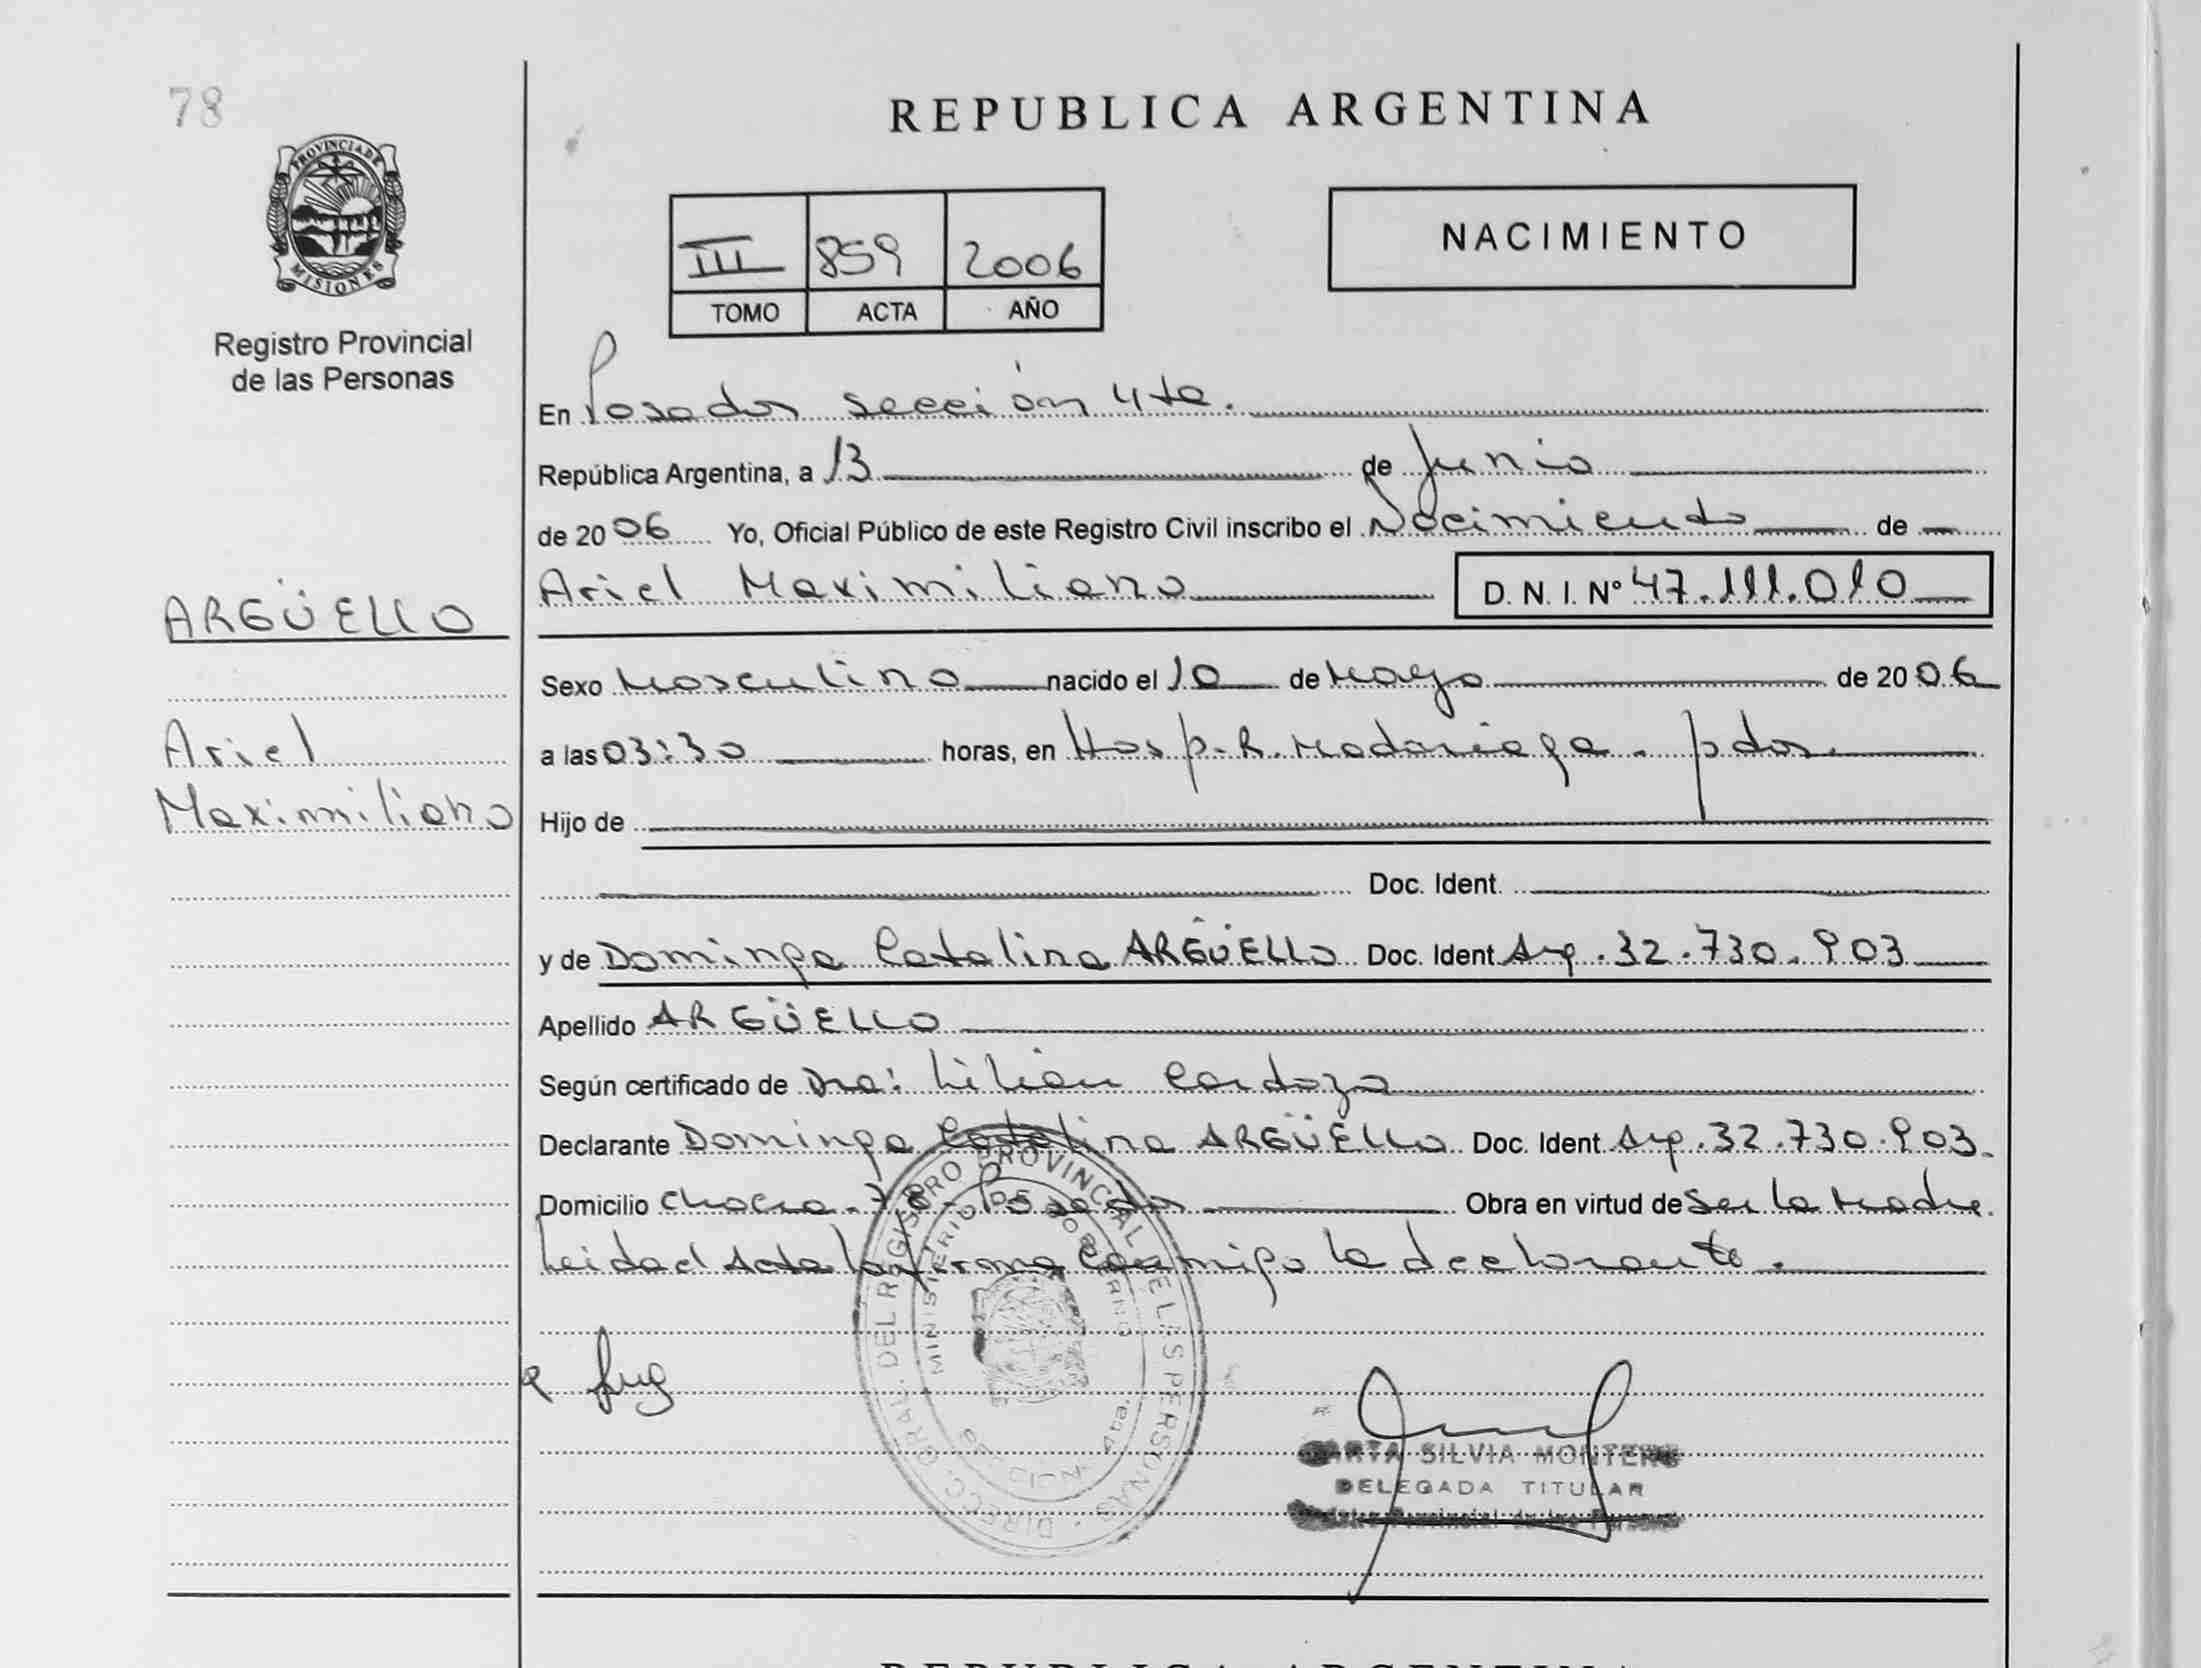 78
REPUBLICA ARGENTINA
PROVINCIA DE
MISIONES
Registro Provincial
de las Personas
III 859 2006
TOMO ACTA AÑO
NACIMIENTO
En Posadas sección 4ta.
República Argentina, a 13 de Junio
de 2006 Yo, Oficial Público de este Registro Civil inscribo el Nacimiento de
Ariel Maximiliano D. N. I. Nº 47.111.010
ARGÜELLO
Ariel
Maximiliano
Sexo Masculino nacido el 10 de Mayo de 2006
a las 03:30 horas, en Hosp. R. Madariaga. pdas.
Hijo de
Doc. Ident.
y de Dominga Catalina ARGÜELLO Doc. Ident Arg. 32.730.903
Apellido ARGÜELLO
Según certificado de Dra: Lilian Cardozo
Declarante Dominga Catalina ARGÜELLO Doc. Ident Arg. 32.730.903.
Domicilio Chacra. 78 - Posadas Obra en virtud de Ser la Madre.
Leida el Acta la firma conmigo la declarante.
DIRECC. GRAL. DEL REGISTRO PROVINCIAL DE LAS PERSONAS
MINISTERIO DE GOBIERNO
4ta.
SILVIA MONTERO
DELEGADA TITULAR
Provincial de las Personas
REPUBLICA ARGENTINA